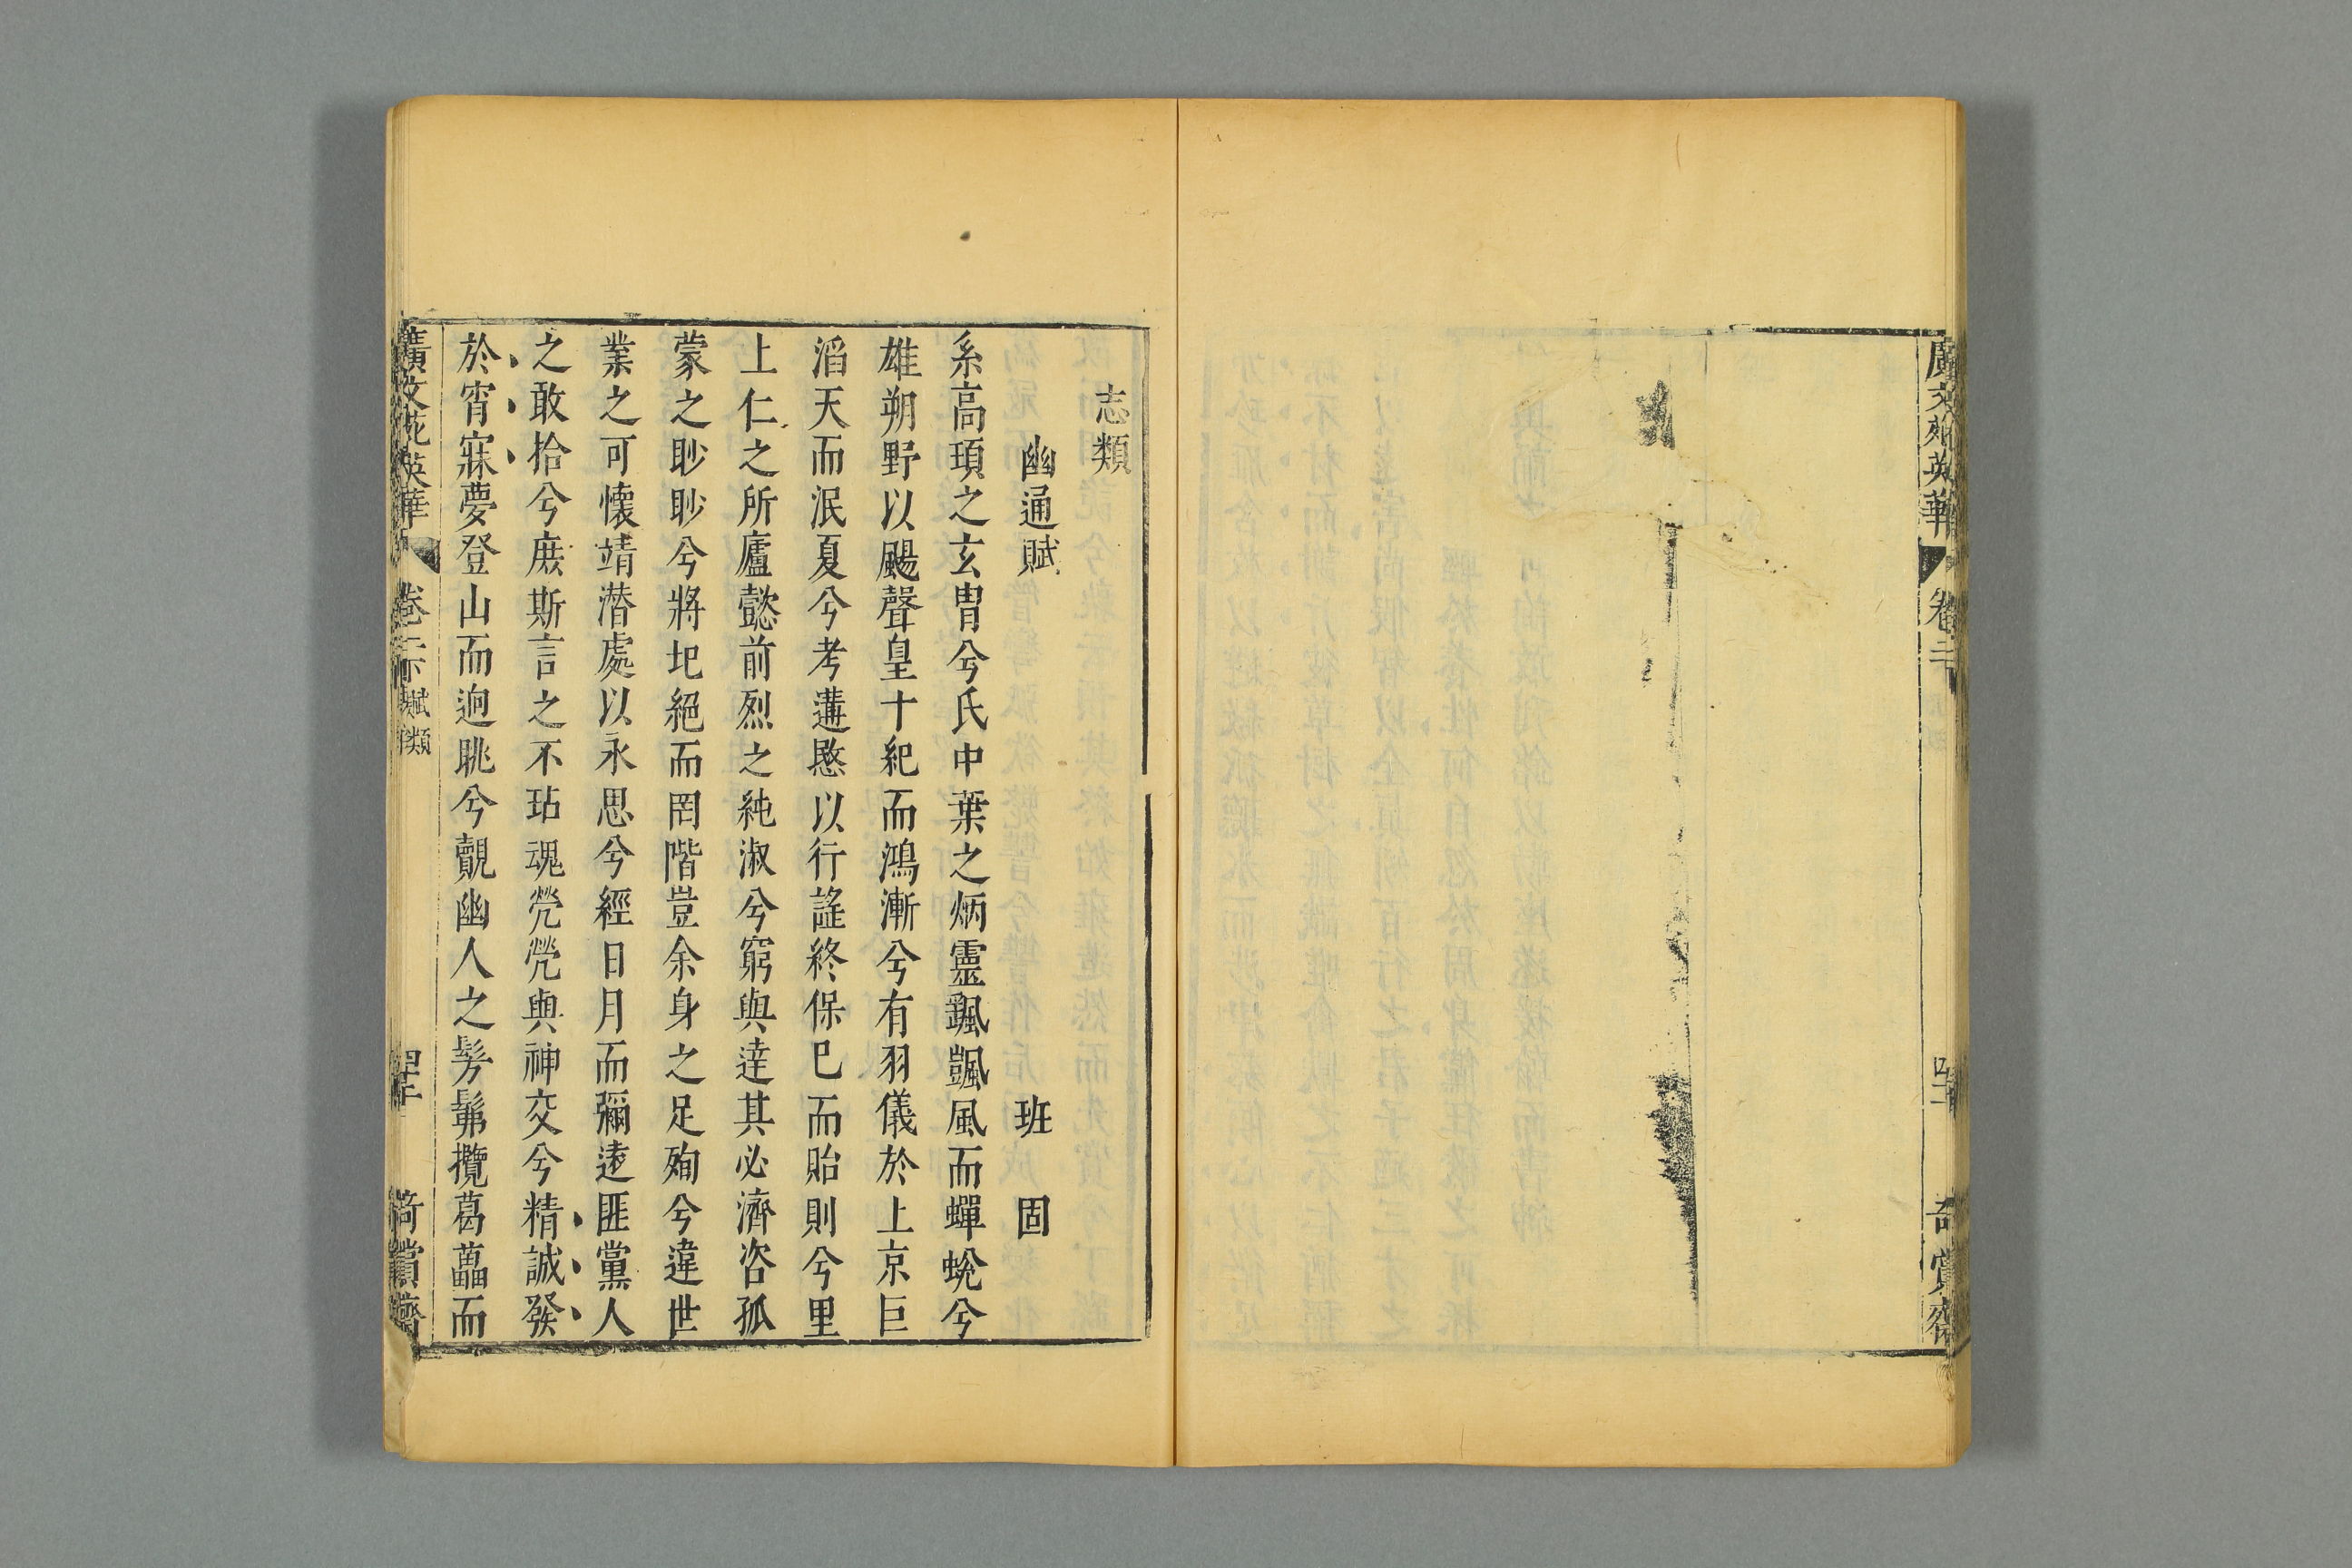 廣文苑英華
卷二十
奇賞齋
志類
幽通賦
班固
系高頊之玄冑兮氏中葉之炳靈颻颽風而蟬蛻兮
雄朔野以颺聲皇十紀而鴻漸兮有羽儀於上京巨
滔天而泯夏兮考遘愍以行謠終保已而貽則兮里
上仁之所廬懿前烈之純淑兮窮與達其必濟咨孤
蒙之眇眇兮將圯絕而罔階豈余身之足殉兮違世
業之可懷靖潛處以永思兮經日月而彌遠匪黨人
之敢拾兮庶斯言之不玷魂焭焭與神交兮精誠發
於宵寐夢登山而逈眺兮覿幽人之髣髴攬葛藟而
廣文苑英華
卷二十
賦類
奇賞齋